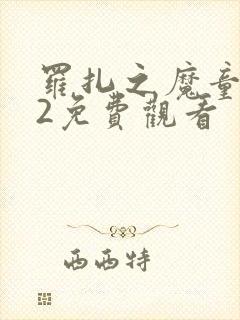 羅扎之魔童
2免費觀看
西西特